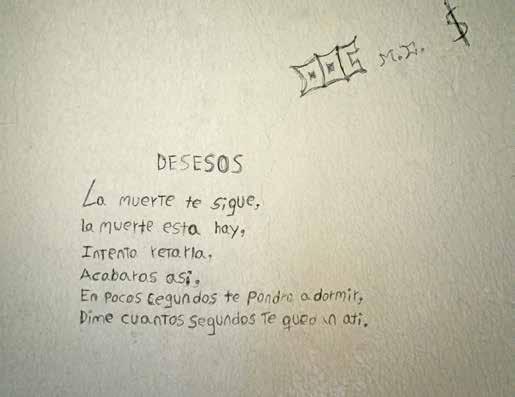 DOC M.X. $
DESESOS
La muerte te sigue,
la muerte esta hay,
Intento retarla,
Acabaras asi,
En pocos Segundos te Pondra a dormir,
Dime cuantos segundos Te quedan ati.